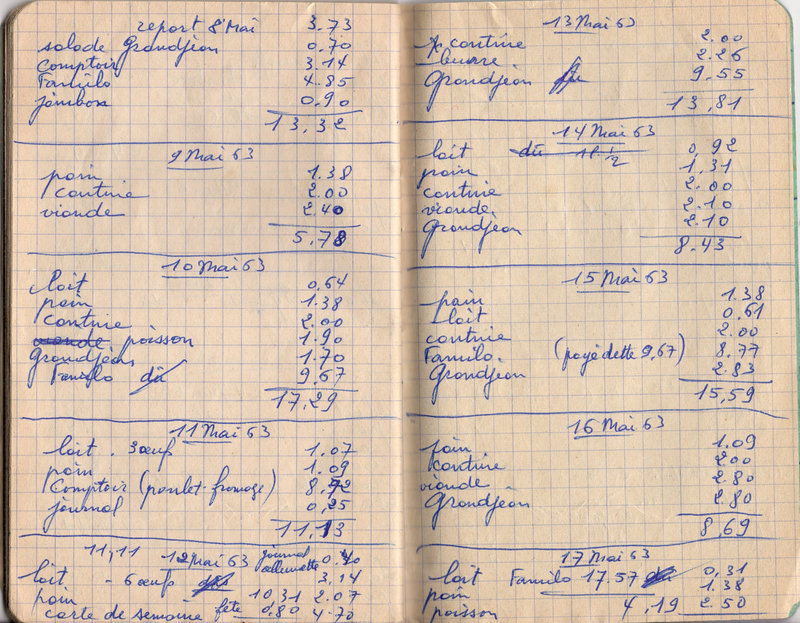 report 8 Mai 3.73
salade Grandjean 0,70
Comptoir 3.14
Familo 4.85
jambon 0.90
13,32
9 Mai 63
pain 1.38
contine 2.00
viande 2.40
5,78
10 Mai 63
lait 0,64
pain 1.38
contine 2.00
viande poisson 1.90
Grandjean 1.70
Familo dû 9,67
17,29
11 Mai 63
lait . 3 œuf 1.07
pain 1.09
Comptoir (poulet-fromage) 8,72
journal 0,25
11,13
11,11 12 Mai 63 journal 0.40
lait - 6 œuf 3,14
pain 10,31 2.07
carte de semaine fête 0,80 4.70
13 Mai 63
contine 2.00
beurre 2.26
Grandjean 9.55
13,81
14 Mai 63
lait dû 1l 1/2 0,92
pain 1,31
contine 2.00
viande 2.10
Grandjean 2.10
8.43
15 Mai 63
pain 1.38
lait 0.61
contine 2.00
Familo. (payé dette 9,67) 8.77
Grandjean 2.83
15,59
16 Mai 63
pain 1.09
contine 2.00
viande 2.80
Grandjean 2.80
8,69
17 Mai 63
lait Familo 17.57 0,31
pain 1.38
poisson 4,19 2.50